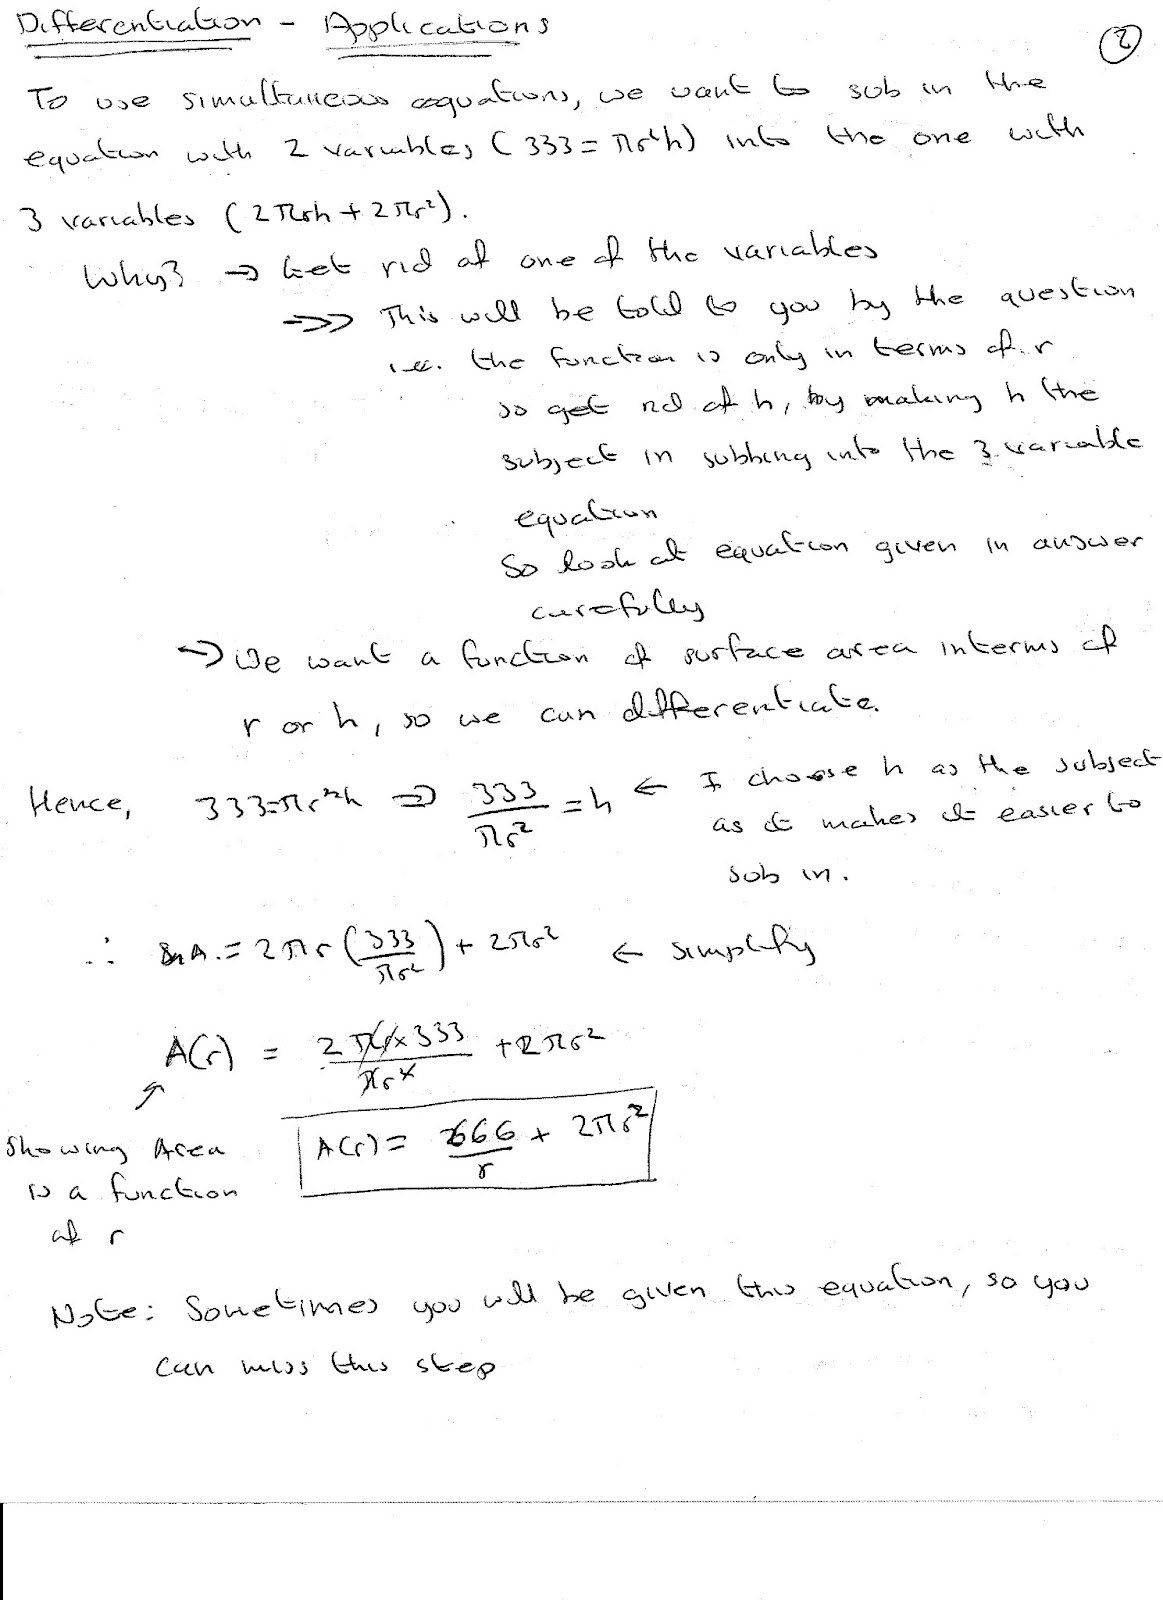 Differentiation - Applications
2
To use simultaneous equations, we want to sub in the
equation with 2 variables (333 = πr²h) into the one with
3 variables (2πrh + 2πr²).
Why? → Get rid of one of the variables
→>> This will be told to you by the question
i.e. the function is only in terms of r
so get rid of h, by making h the
subject in subbing into the 3 variable
equation
So look at equation given in answer
carefully
→ We want a function of surface area in terms of
r or h, so we can differentiate.
Hence, 333=πr²h ⇒ 333/πr² = h ← I choose h as the subject
as it makes it easier to
sub in.
∴ S.A. = 2πr(333/πr²) + 2πr² ← simplify
A(r) = 2πr×333/πr² + 2πr²
A(r) = 666/r + 2πr²
Showing Area
is a function
of r
Note: Sometimes you will be given this equation, so you
can miss this step